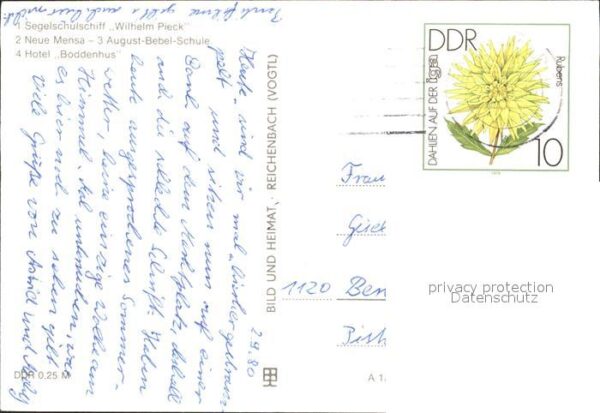 1 Segelschulschiff „Wilhelm Pieck"
2 Neue Mensa – 3 August-Bebel-Schule
4 Hotel „Boddenhus"
2.9.80
Heute sind wir mal
und sitzen nun auf einer
Bank auf dem Marktplatz, deshalb
auch die schlechte Schrift. Haben
heute ausgesprochenes Sommer-
wetter, keine einzige Wolke am
Himmel. Mal untersuchen, was
es hier noch zu sehen gibt.
Viele Grüße von Astrid und
DDR 0,25 M
BILD UND HEIMAT, REICHENBACH (VOGTL)
A 1
DDR
DAHLIEN AUF DER
Rubens
10
Frau
1120 Ber
privacy protection
Datenschutz